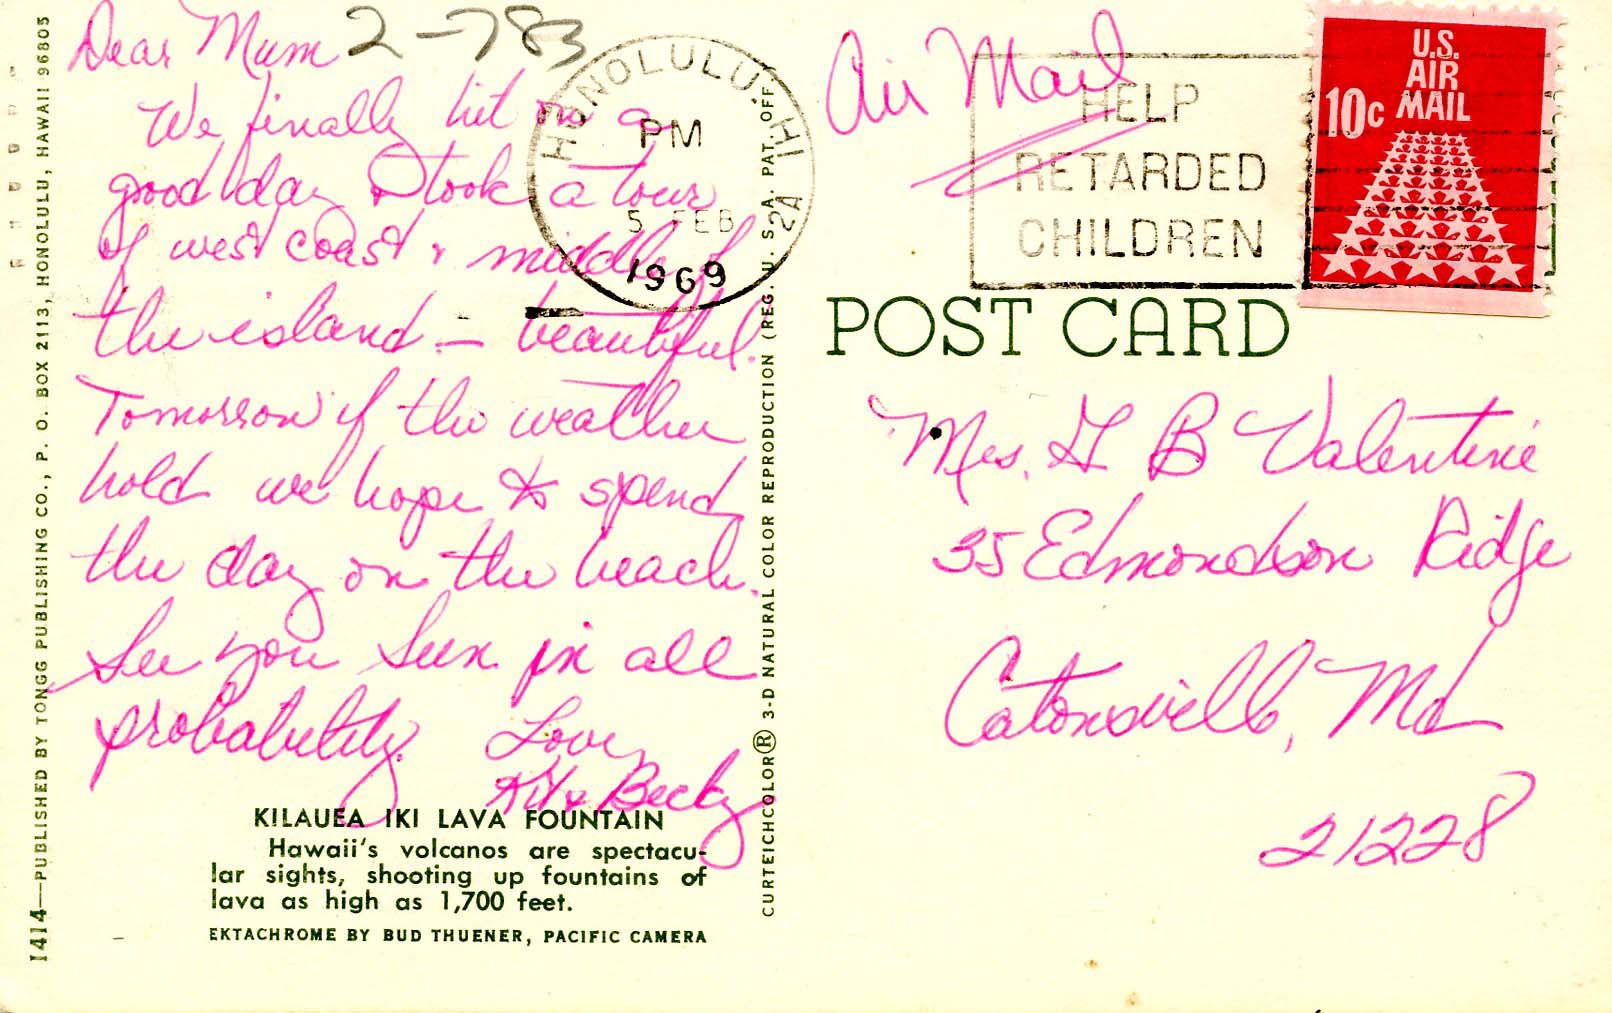 Dear Mum
2-783
We finally hit on a
good day & took a tour
of west coast & middle of
the island - beautiful.
Tomorrow if the weather
hold we hope to spend
the day on the beach.
See you soon in all
probability. Love,
Kit & Becky
KILAUEA IKI LAVA FOUNTAIN
Hawaii's volcanos are spectacu-
lar sights, shooting up fountains of
lava as high as 1,700 feet.
EKTACHROME BY BUD THUENER, PACIFIC CAMERA
1414—PUBLISHED BY TONGG PUBLISHING CO., P. O. BOX 2113, HONOLULU, HAWAII 96805
CURTEICHCOLOR® 3-D NATURAL COLOR REPRODUCTION (REG. U. S. A. PAT. OFF.)
HONOLULU, HI
PM
5 FEB
1969
2A
Air Mail
HELP
RETARDED
CHILDREN
U.S.
AIR
MAIL
10c
POST CARD
Mrs. G B Valentine
35 Edmondson Ridge
Catonsville, Md
21228